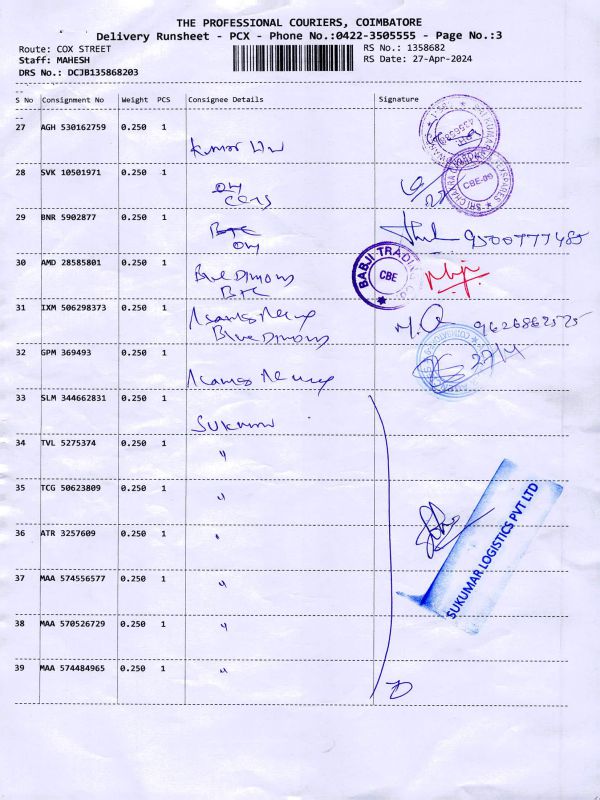 THE PROFESSIONAL COURIERS, COIMBATORE
Delivery Runsheet - PCX - Phone No.:0422-3505555 - Page No.:3
Route: COX STREET
RS No.: 1358682
Staff: MAHESH
RS Date: 27-Apr-2024
DRS No.: DCJB135868203
S No Consignment No Weight PCS Consignee Details Signature
27 AGH 530162759 0.250 1
Kumar
28 SVK 10501971 0.250 1
CBE-09
29 BNR 5902877 0.250 1
BTC
9500777485
30 AMD 28585801 0.250 1
Blue Dimons
BTC
BABJI TRADING CO
CBE
31 IXM 506298373 0.250 1
Blue Dimons
32 GPM 369493 0.250 1
27/4
33 SLM 344662831 0.250 1
Sukumar
34 TVL 5275374 0.250 1
"
35 TCG 50623809 0.250 1
"
36 ATR 3257609 0.250 1
"
SUKUMAR LOGISTICS PVT LTD
37 MAA 574556577 0.250 1
"
38 MAA 570526729 0.250 1
"
39 MAA 574484965 0.250 1
"